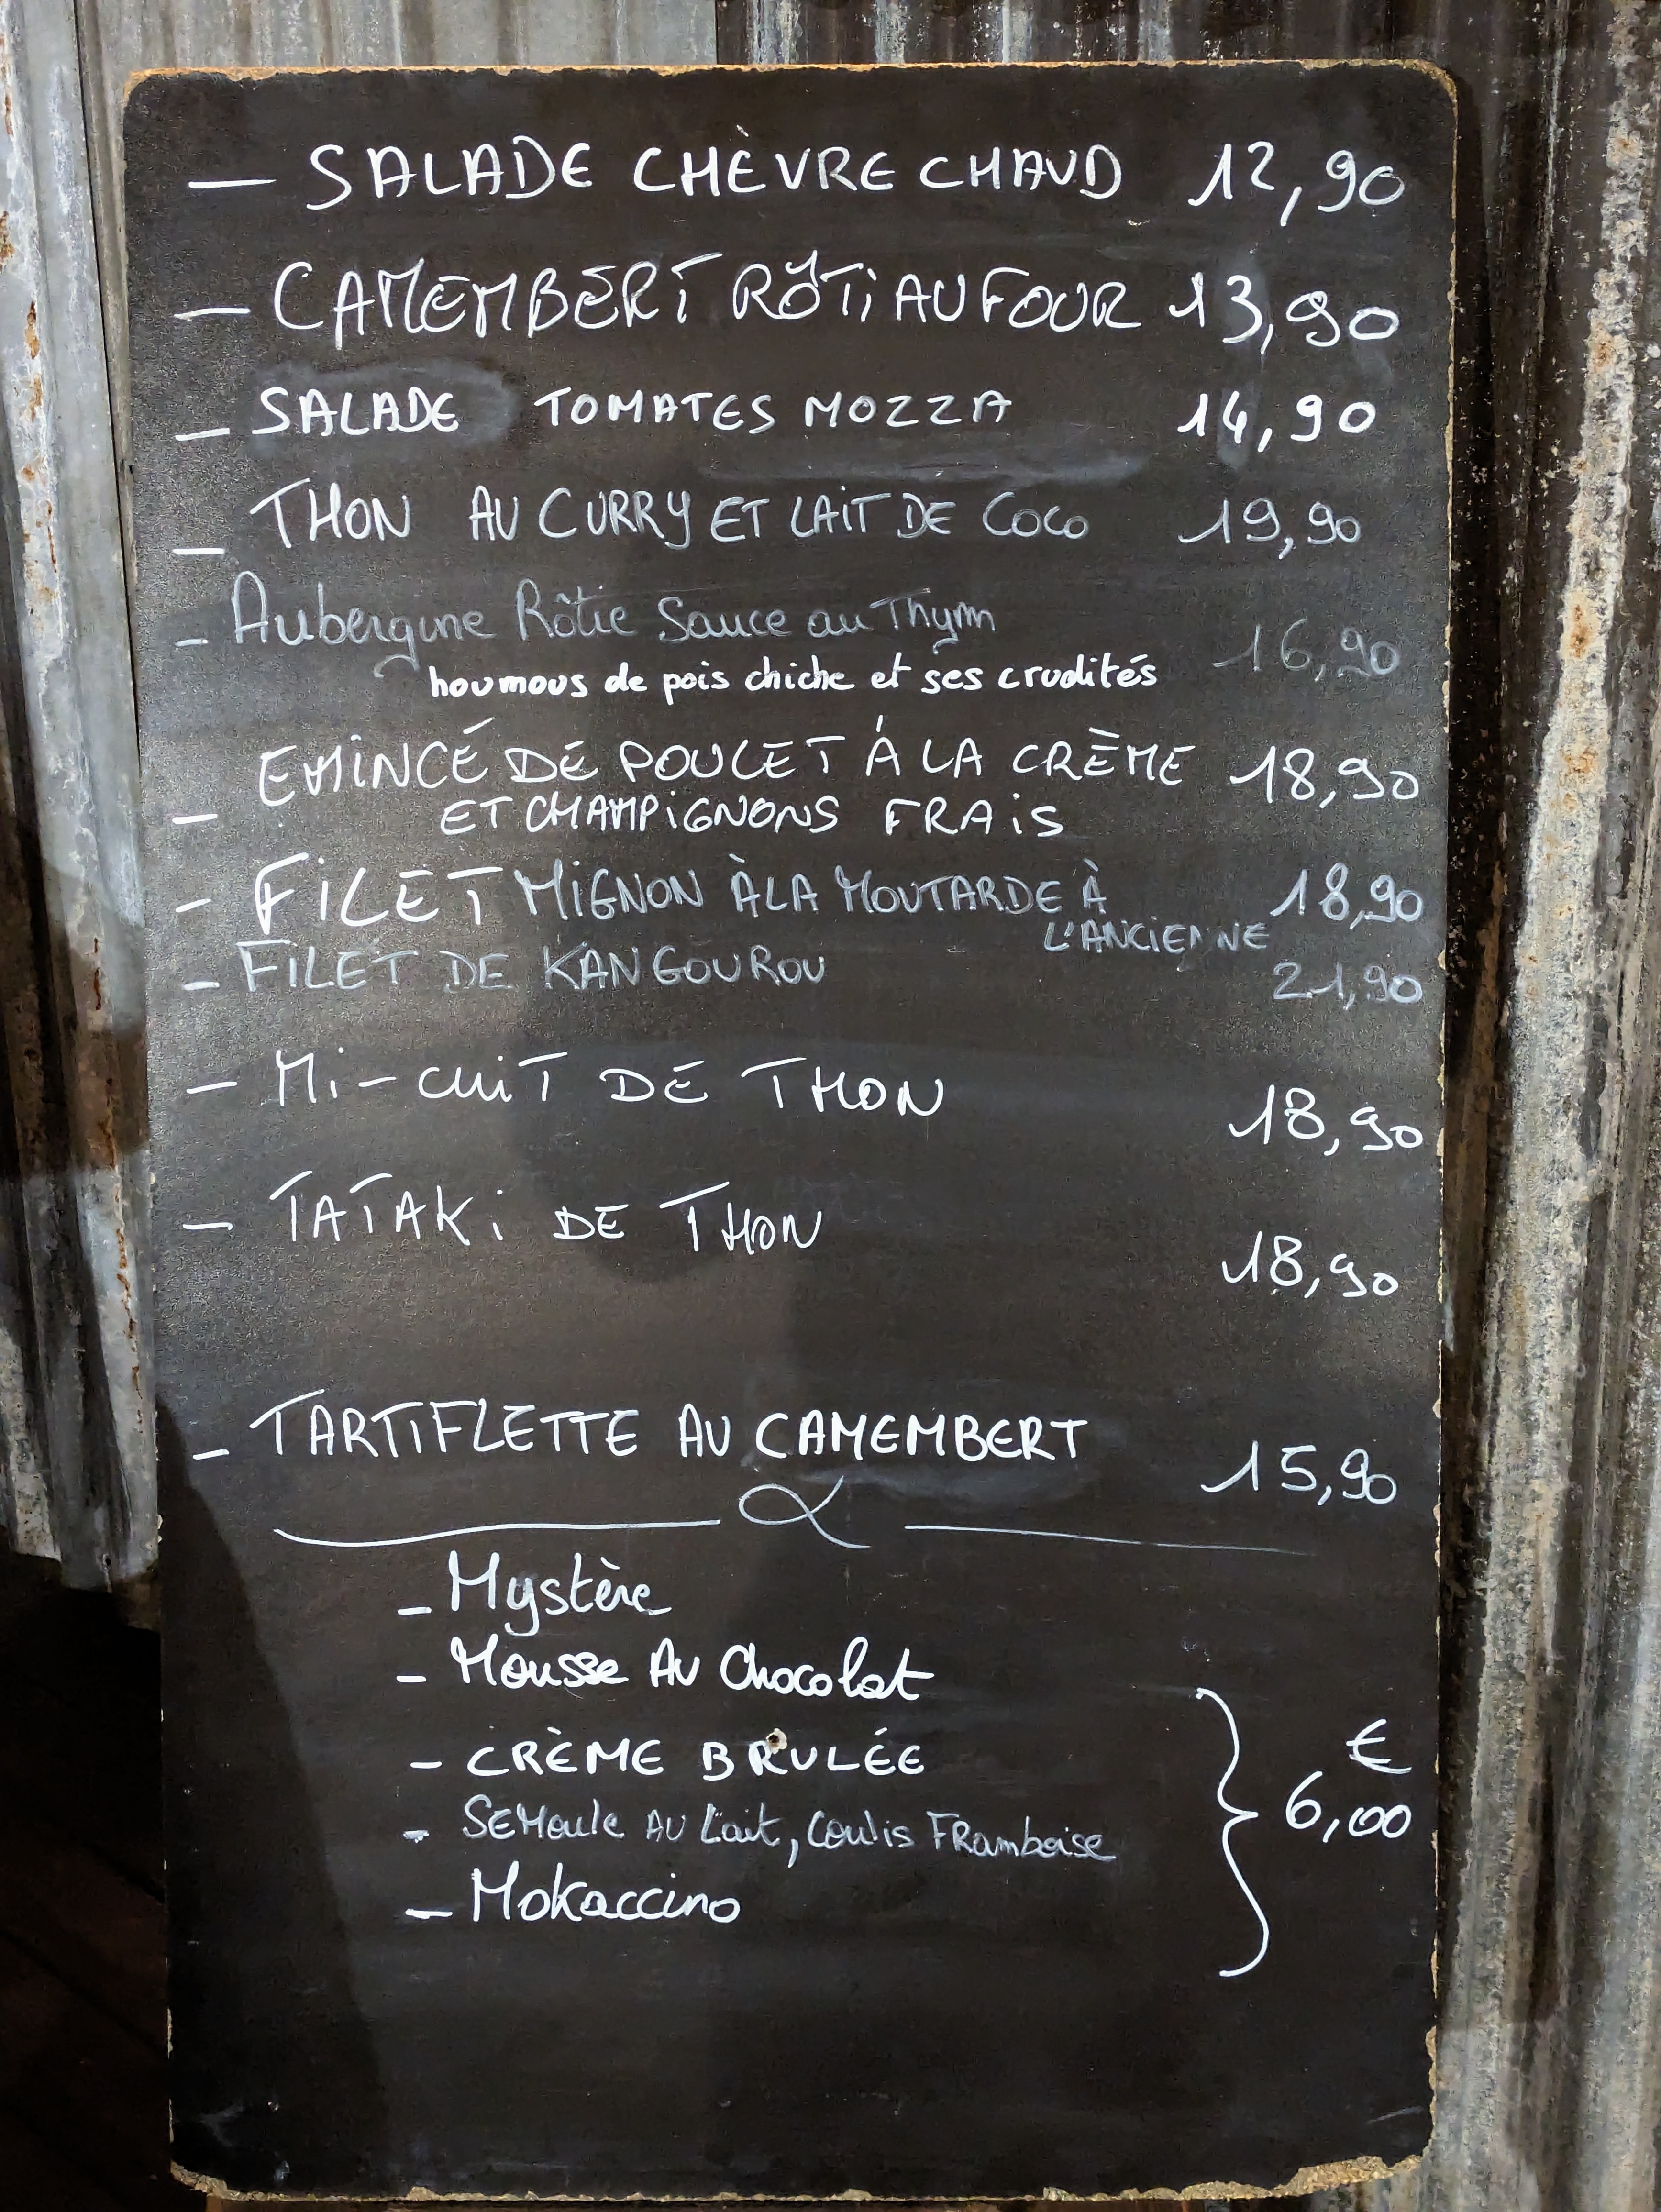 — SALADE CHÈVRE CHAUD 12,90
— CAMEMBERT RÔTI AU FOUR 13,90
— SALADE TOMATES MOZZA 14,90
— THON AU CURRY ET LAIT DE COCO 19,90
- Aubergine Rôtie Sauce au Thym 16,90
houmous de pois chiche et ses crudités
— EMINCÉ DE POULET À LA CRÈME 18,90
ET CHAMPIGNONS FRAIS
- FILET MIGNON À LA MOUTARDE À 18,90
L'ANCIENNE
- FILET DE KANGOUROU 21,90
- Mi-CUIT DE THON 18,90
- TATAKI DE THON 18,90
- TARTIFLETTE AU CAMEMBERT 15,90
- Mystère
- Mousse Au Chocolat
- CRÈME BRULÉE
€
- SEMoule AU Lait, Coulis FRamboise 6,00
- Mokaccino